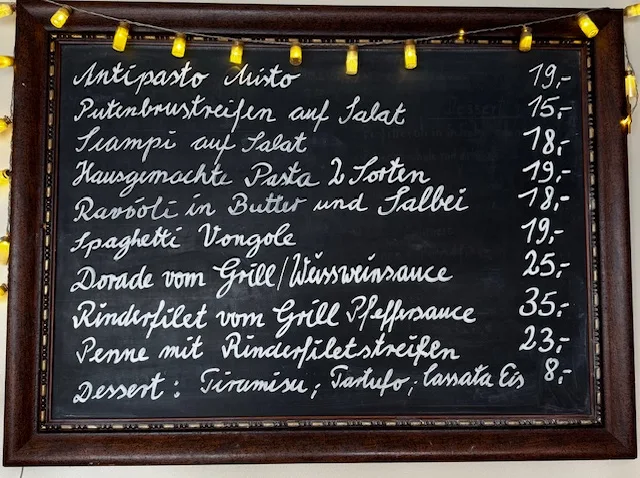 Antipasto Misto 19,-
Putenbruststreifen auf Salat 15,-
Scampi auf Salat 18,-
Hausgemachte Pasta 2 Sorten 19,-
Ravioli in Butter und Salbei 18,-
Spaghetti Vongole 19,-
Dorade vom Grill/Weissweinsauce 25,-
Rinderfilet vom Grill Pfeffersauce 35,-
Penne mit Rinderfiletstreifen 23,-
Dessert: Tiramisu, Tartufo, Cassata Eis 8,-